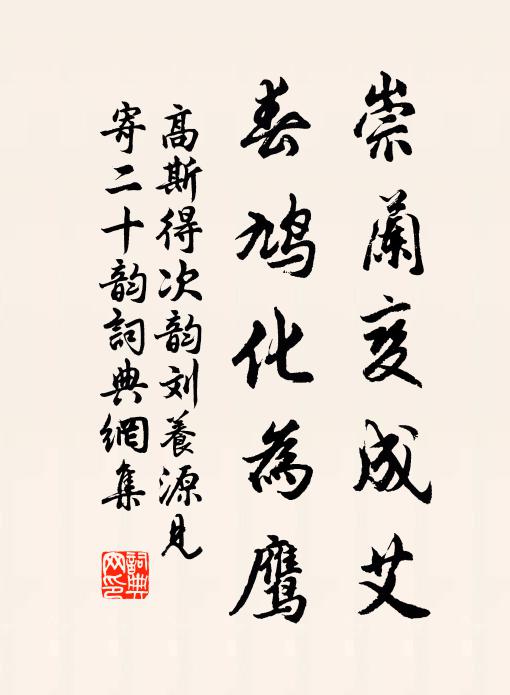 崇蘭变成艾
春鳩化為鷹
高斯得次韵刘養源見
寄二十韵詞典網集
詞典网印